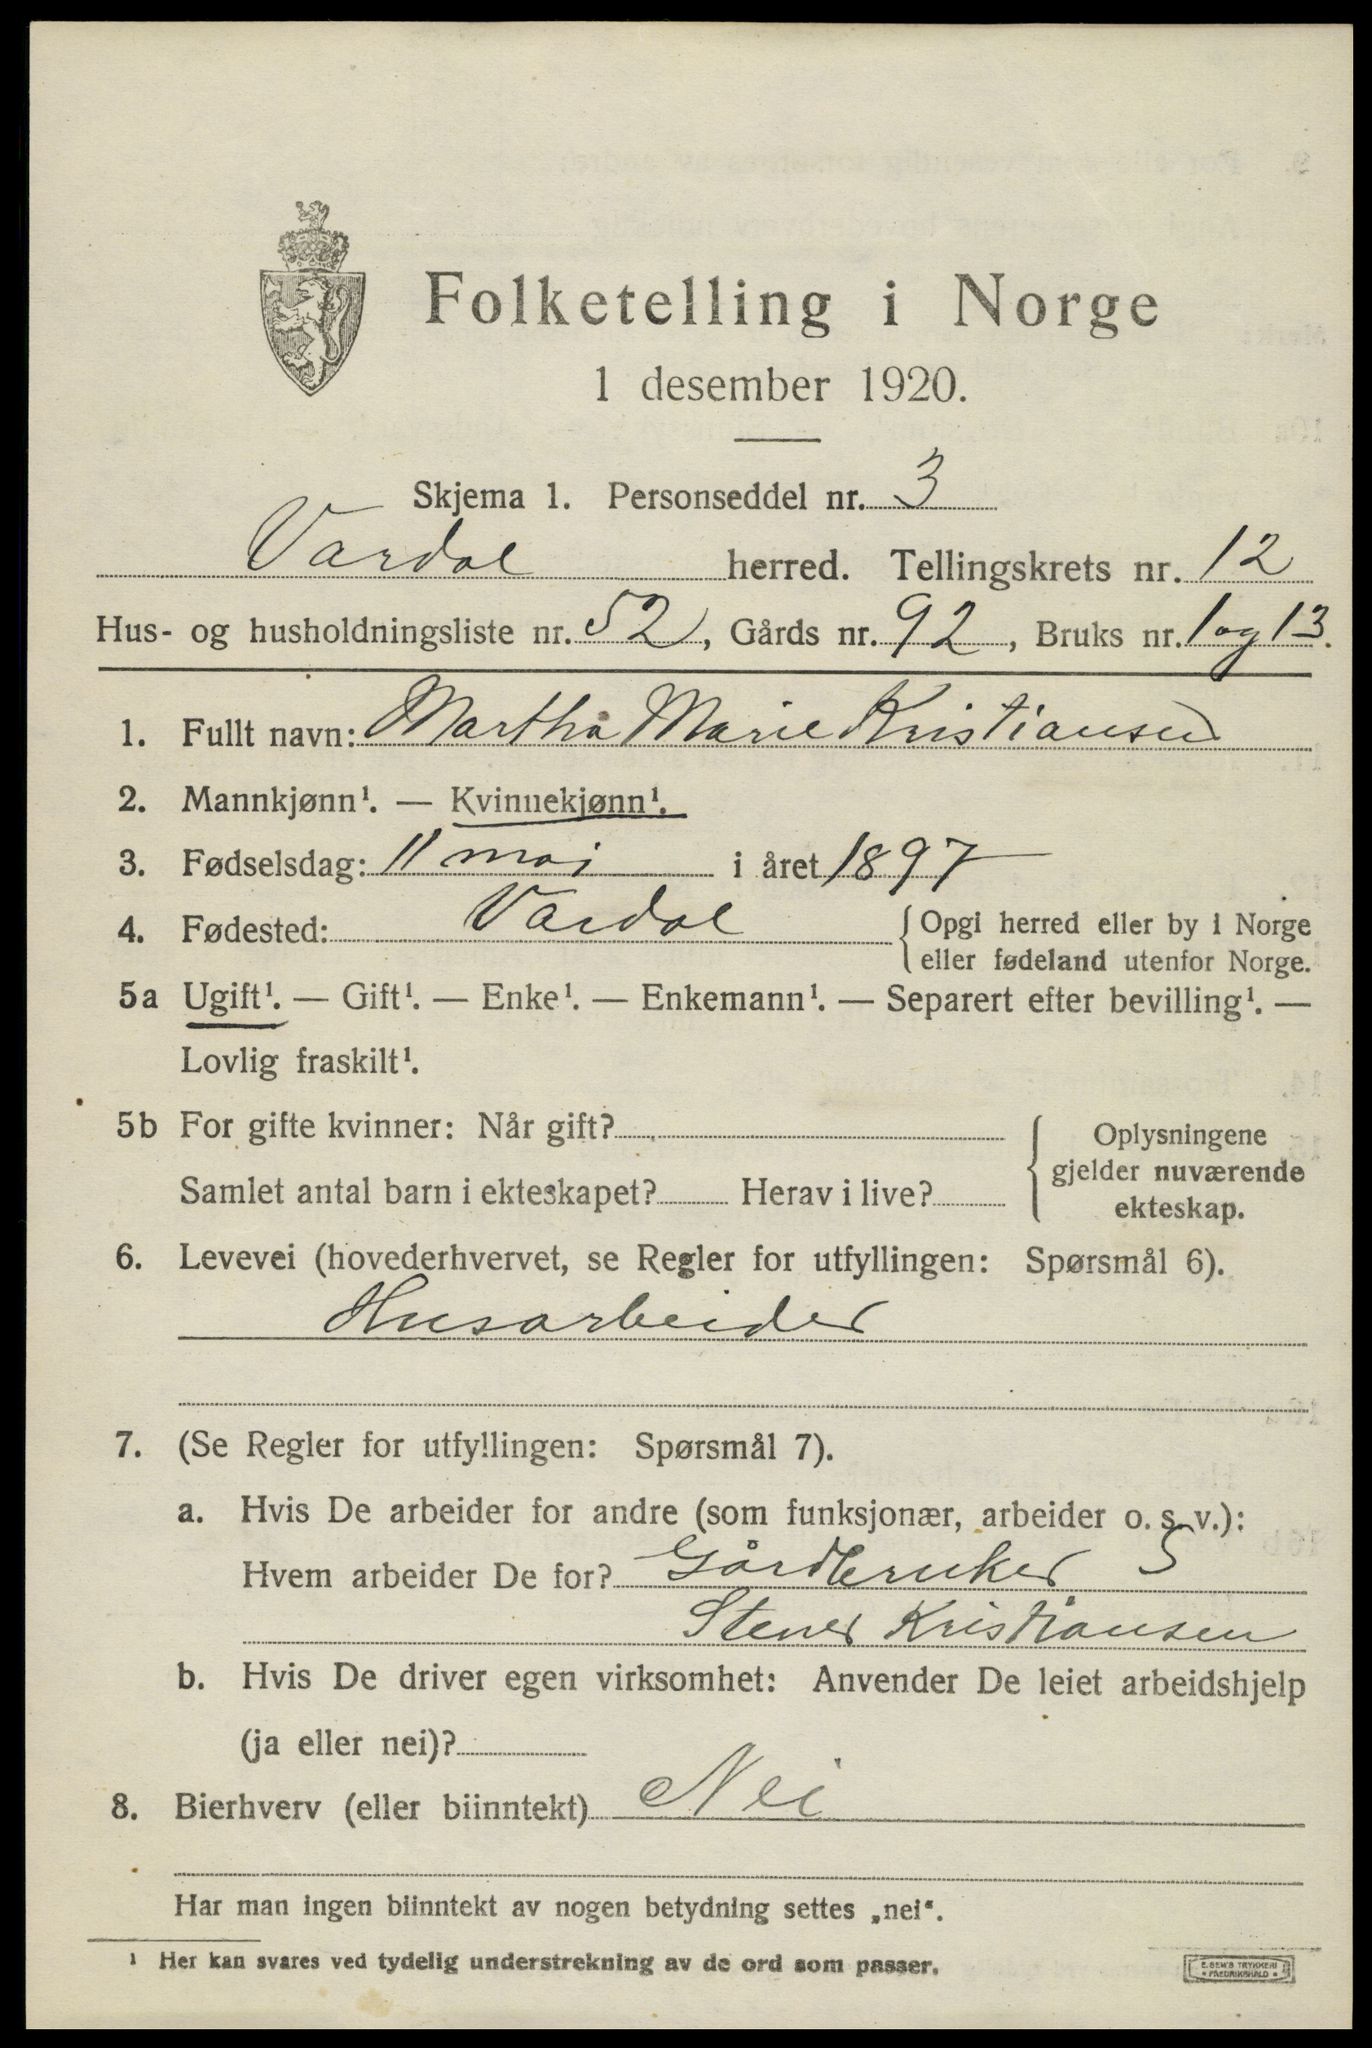 Folketelling i Norge
1 desember 1920.
Skjema 1. Personseddel nr. 3
Vardal herred. Tellingskrets nr. 12
Hus- og husholdningsliste nr. 52, Gårds nr. 92, Bruks nr. 1 og 13.
1. Fullt navn: Martha Marie Kristiansen
2. Mannkjønn¹. — Kvinnekjønn¹.
3. Fødselsdag: 11 mai i året 1897
4. Fødested: Vardal { Opgi herred eller by i Norge
eller fødeland utenfor Norge.
5a Ugift¹. — Gift¹. — Enke¹. — Enkemann¹. — Separert efter bevilling¹. —
Lovlig fraskilt¹.
5b For gifte kvinner: Når gift?
Samlet antal barn i ekteskapet? Herav i live?
{ Oplysningene
gjelder nuværende
ekteskap.
6. Levevei (hovederhvervet, se Regler for utfyllingen: Spørsmål 6).
Husarbeider
7. (Se Regler for utfyllingen: Spørsmål 7).
a. Hvis De arbeider for andre (som funksjonær, arbeider o. s. v.):
Hvem arbeider De for? Gårdbruker S
Stener Kristiansen
b. Hvis De driver egen virksomhet: Anvender De leiet arbeidshjelp
(ja eller nei)?
8. Bierhverv (eller biinntekt) Nei
Har man ingen biinntekt av nogen betydning settes „nei“.
¹ Her kan svares ved tydelig understrekning av de ord som passer.
E. SEM'S TRYKKERI
FREDRIKSHALD